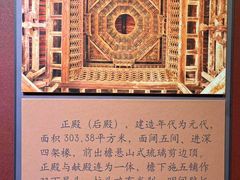 正殿（后殿），建造年代为元代，
面积 303.38平方米，面间五间，进深
四架椽，前出檐悬山式琉璃剪边顶。
正殿与献殿连为一体，檐下施五铺作